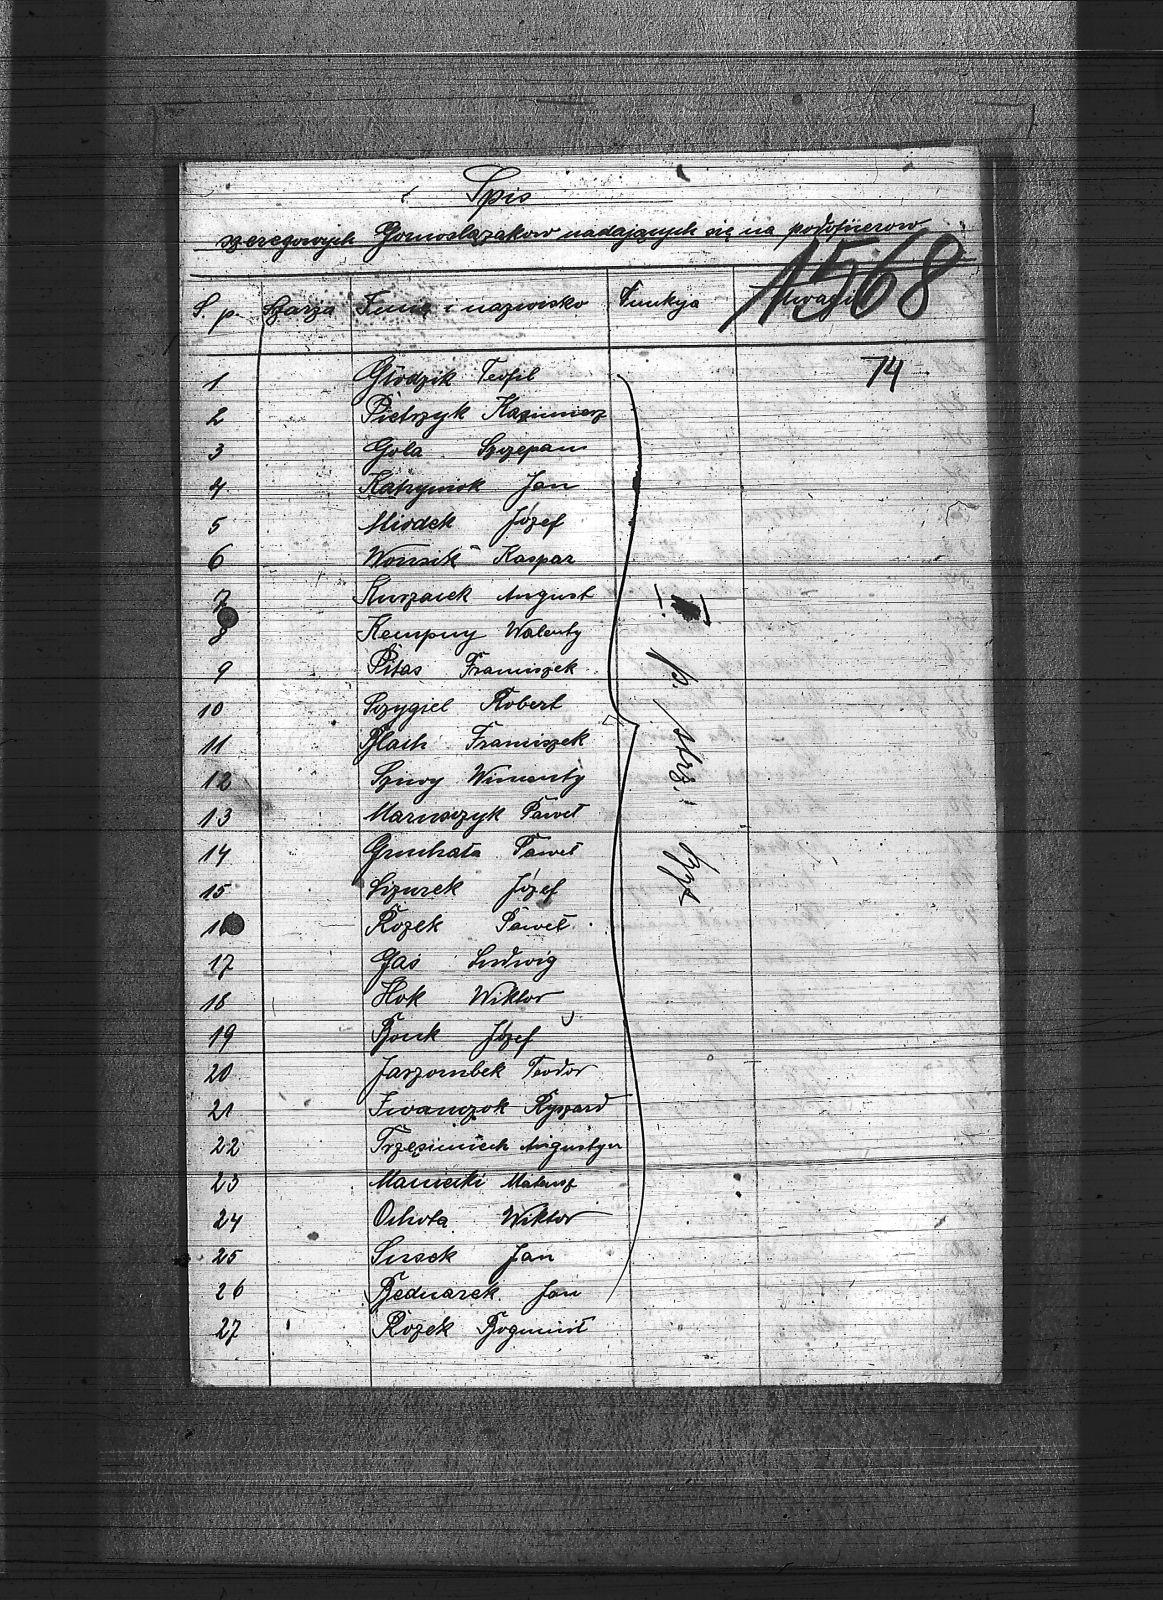 Spis
szeregowych Gornoslązakow nadających się na podoficerow
1568
L. p. Szarża Imię i nazwisko Funkcja Uwagi
74
1 Głodzik Teofil
2 Pietrzyk Kazimierz
3 Gola Szczepan
4 Katryniok Jan
5 Miodek Józef
6 Wonsik Kaspar
7 August
8 Kempny Walenty
9 Pitas Franciszek
10 Szczygiel Robert
11 Blach Franciszek
12 Wincenty
13 Marnszczyk Paweł
14 Gruchała Paweł
15 Józef
16 Rozek Paweł
17 Gaś Ludwig
18 Hok Wiktor
19 Bonk Józef
20 Jarzombek Teodor
21 Iwanczok Ryszard
22 Augustyn
23 Maniecki Mateusz
24 Ochota Wiktor
25 Jan
26 Bednarek Jan
27 Rozek Bogumił
I p. strz. byt